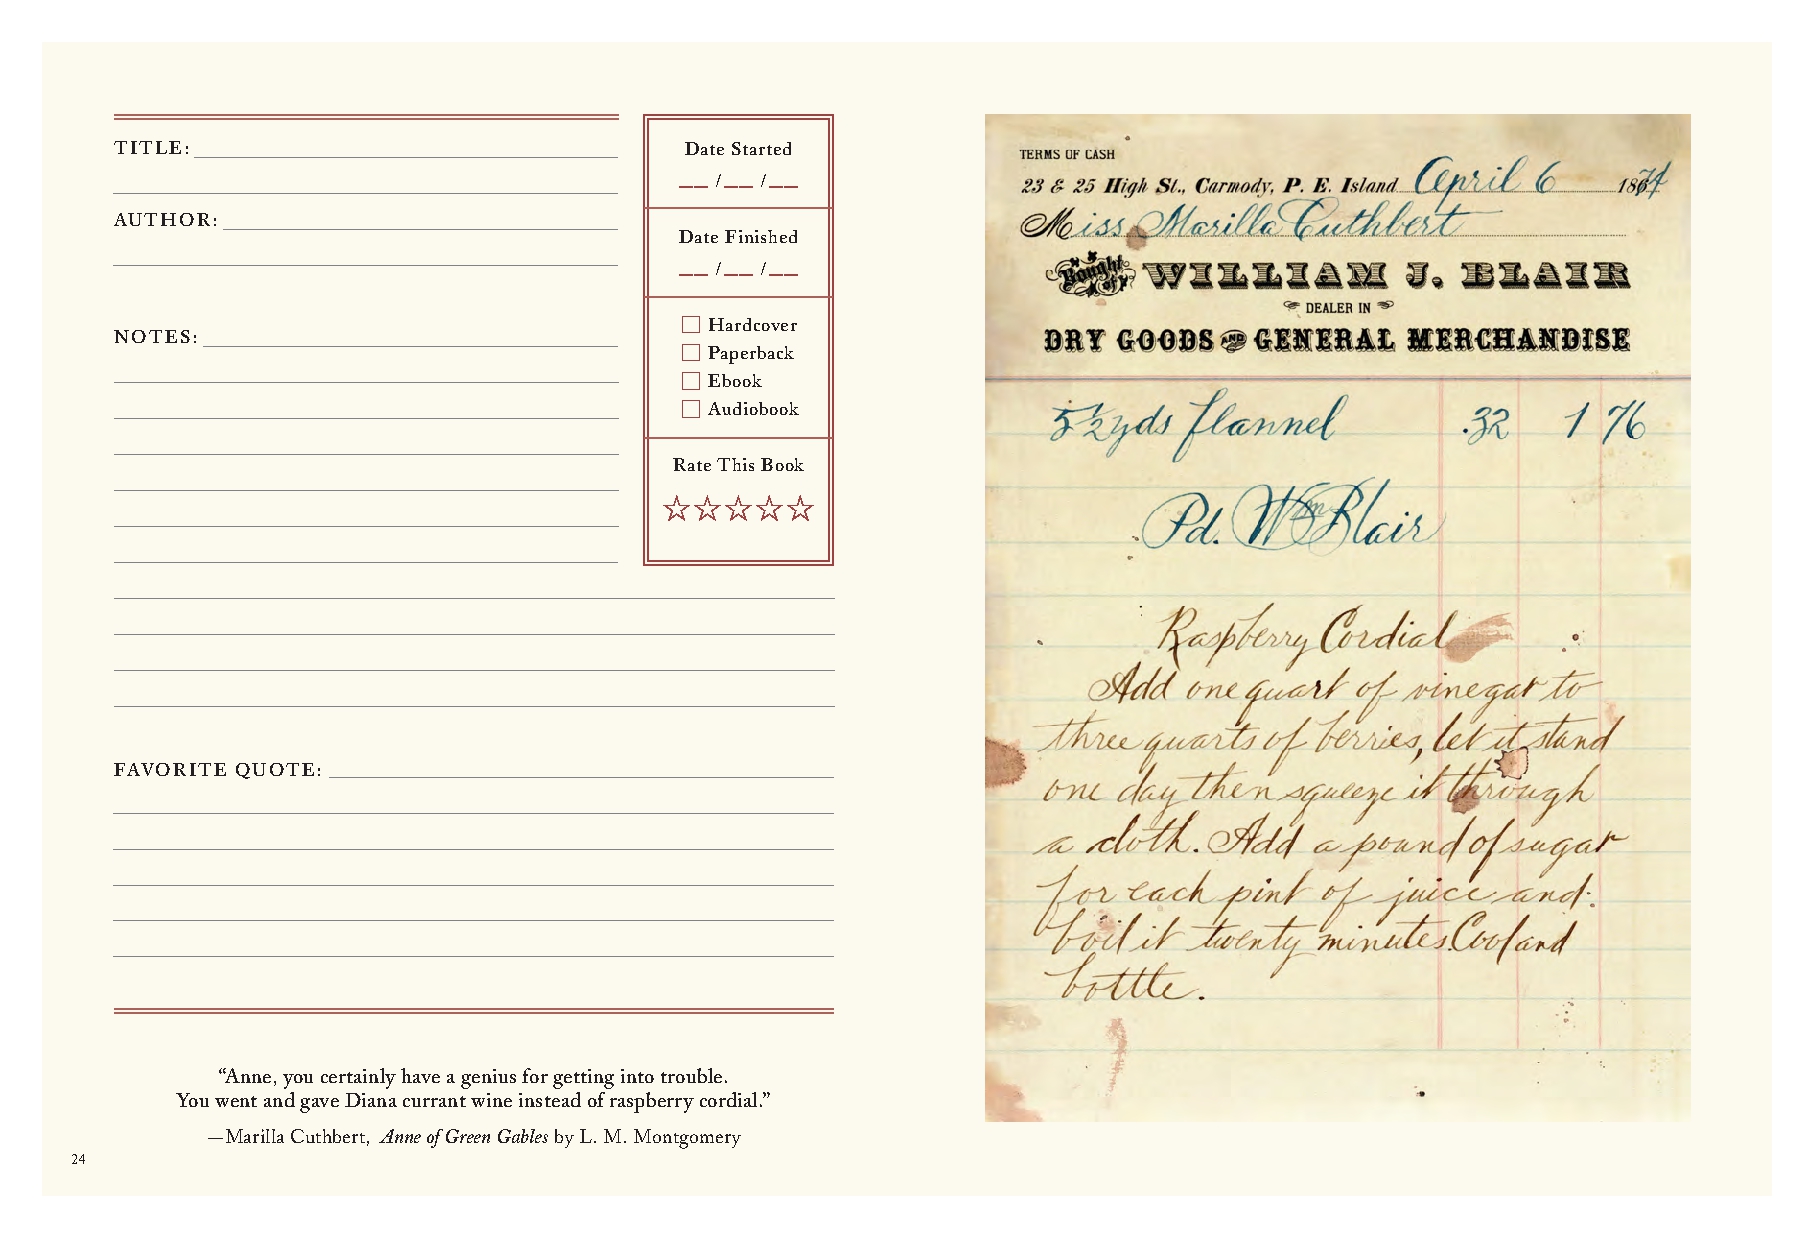 TITLE:
AUTHOR:
NOTES:
Date Started
__ /__ /__
Date Finished
__ /__ /__
Hardcover
Paperback
Ebook
Audiobook
Rate This Book
FAVORITE QUOTE:
“Anne, you certainly have a genius for getting into trouble.
You went and gave Diana currant wine instead of raspberry cordial.”
—Marilla Cuthbert, Anne of Green Gables by L. M. Montgomery
24
TERMS OF CASH
23 & 25 High St., Carmody, P. E. Island April 6 1874
Miss Marilla Cuthbert
Bought of WILLIAM J. BLAIR
DEALER IN
DRY GOODS AND GENERAL MERCHANDISE
5 1/2 yds flannel .32 1 76
Pd. Wm Blair
Raspberry Cordial
Add one quart of vinegar to
three quarts of berries, let it stand
one day then squeeze it through
a cloth. Add a pound of sugar
for each pint of juice and
boil it twenty minutes. Cool and
bottle.